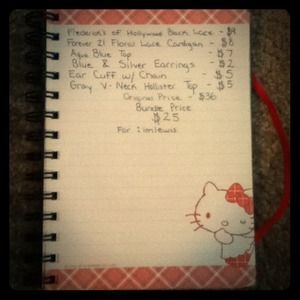 Frederick's of Hollywood Black Lace - $9
Forever 21 Floral Lace Cardigan - $8
Aqua Blue Top - $7
Blue & Silver Earrings - $2
Ear Cuff w/ Chain - $5
Gray V-Neck Hollister Top - $5
Original Price - $36
Bundle Price
$25
For: limlewis